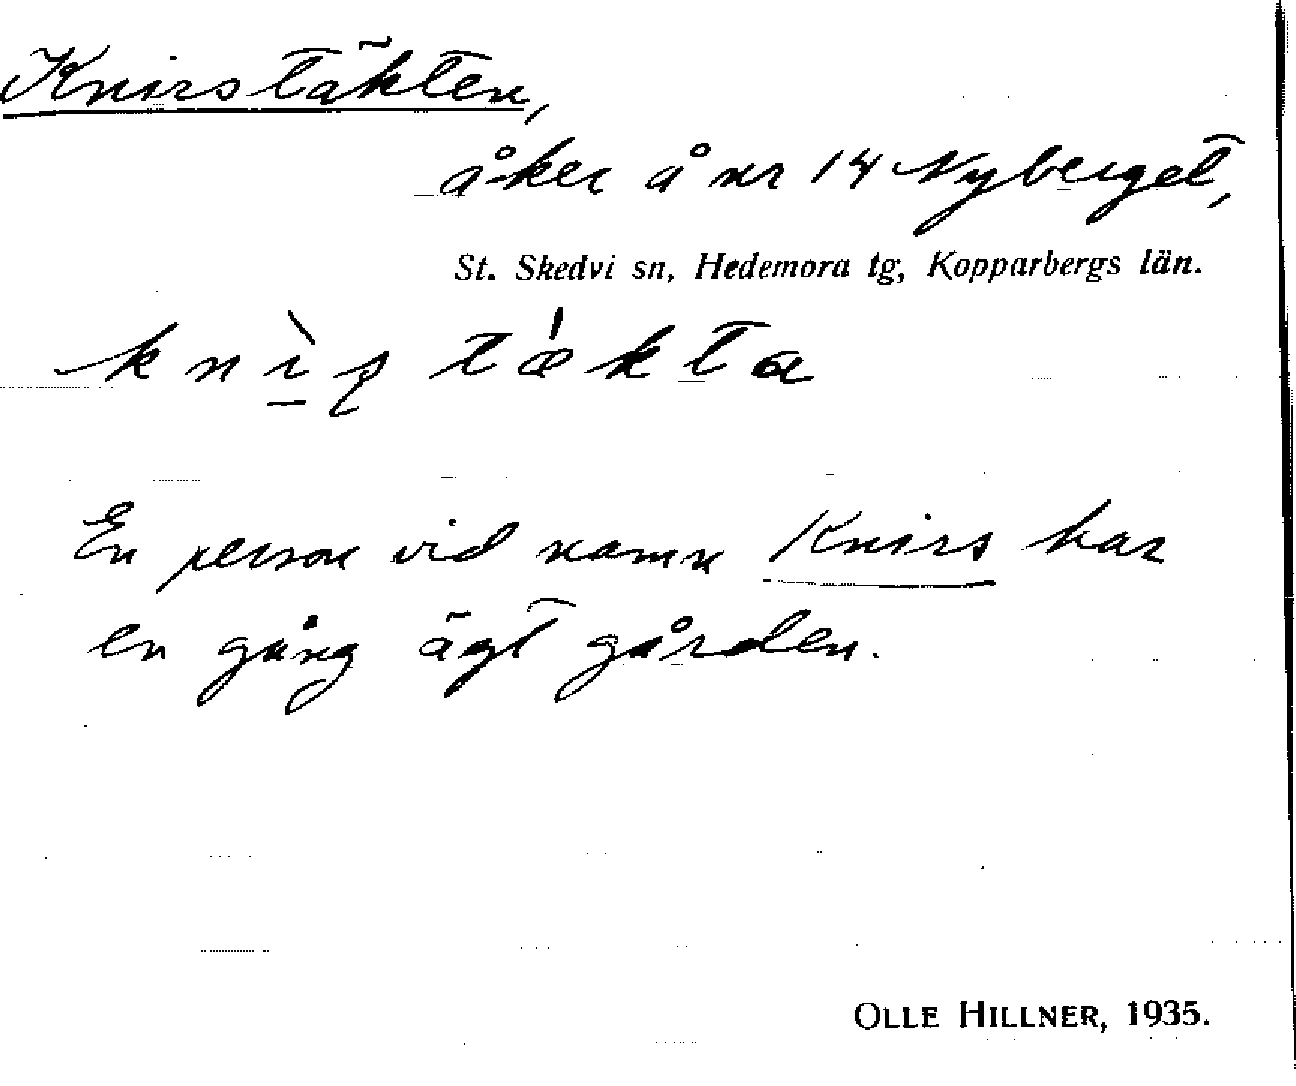 Knirstäkten,
åker å nr 14 Nyberget,
St. Skedvi sn, Hedemora tg, Kopparbergs län.
knı̱̀ʂtǽkta
En person vid namn Knirs har
en gång ägt gården.
OLLE HILLNER, 1935.